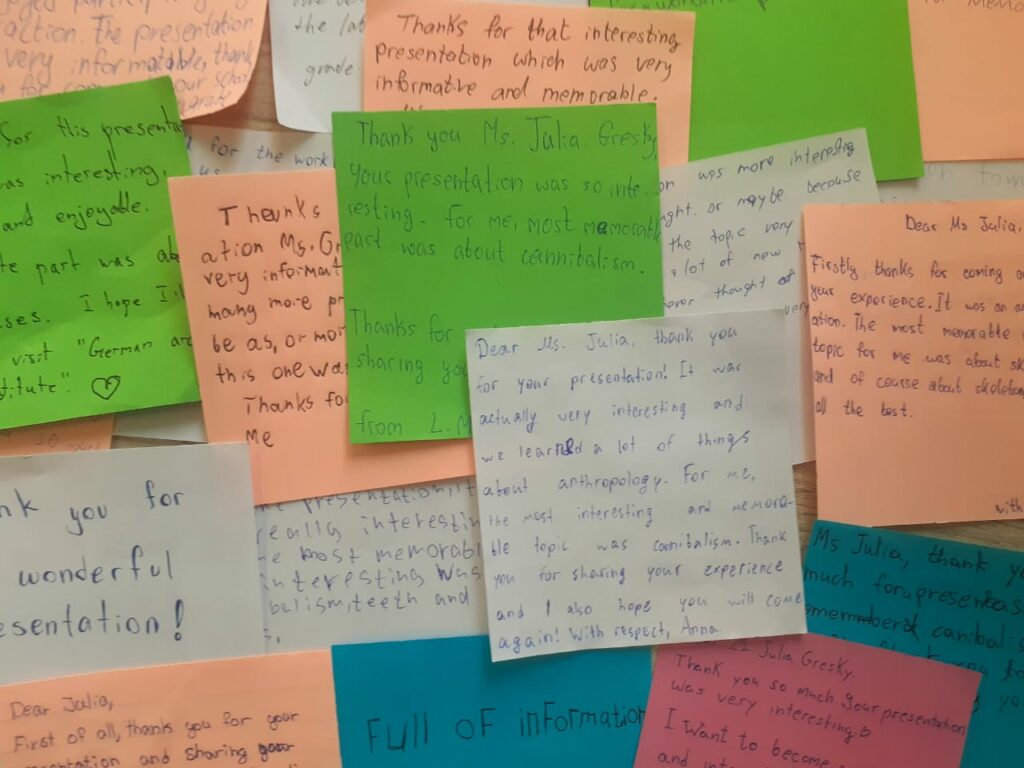 action. The presentation
very informatable, thank
the lat
grade
Thanks for that interesting
presentation which was very
informative and memorable.
for this presenta
as interesting,
and enjoyable.
te part was abo
I hope I'll
ses. I
visit "German arc
titute". ♡
for the work
us
Thanks
ation Ms. Gr
very informat
many more pr
be as, or mor
this one was
Thanks fo
Me
Thank you Ms. Julia. Gresky,
your presentation was so inte
resting. For me, most memorable
part was about cannibalism.
Thanks for
sharing you
from. L.M
on was more interesting
ght. or maybe because
the topic very
a lot of new
ever thought of
very
Dear Ms Julia,
Firstly, thanks for coming
your experience. It was an
ation. The most memorable
topic for me was about sk
and of course about skeleton
all the best.
with
Dear Ms. Julia, thank you
for your presentation! It was
actually very interesting and
we learned a lot of things
about anthropology. For me,
the most interesting and memora-
ble topic was canibalism. Thank
you for sharing your experience
and I also hope you will come
again! With respect, Anna.
nk you for
wonderful
esentation!
presentation, it
really interestin
e most memorabl
interesting was
balism, teeth and
Ms Julia, thank yo
much for presentas
memberd canibalis
Dear Julia,
First of all, thank you for your
sentation and sharing your
Full of information
Julia Gresky.
Thank you so much your presentation
was very interesting.
I Want to become
and inte